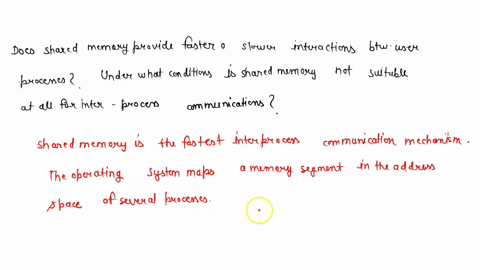 Does shared memory provide faster o slower interactions btw. user
processes? Under what conditions is shared memory not suitable
at all for inter - process communications?
shared memory is the fastest interprocess communication mechanism.
The operating system maps a memory segment in the address
space of several processes.